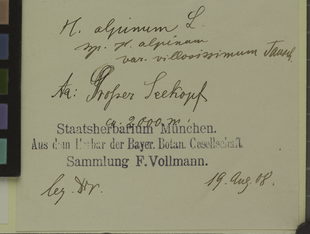 H. alpinum L.
sp. H. alpinum
var. villosissimum Tausch
Großer Seekopf
ca. 2000 m.
Staatsherbarium München.
Aus dem Herbar der Bayer. Botan. Gesellschaft
Sammlung F. Vollmann.
leg. 19. Aug. 08.